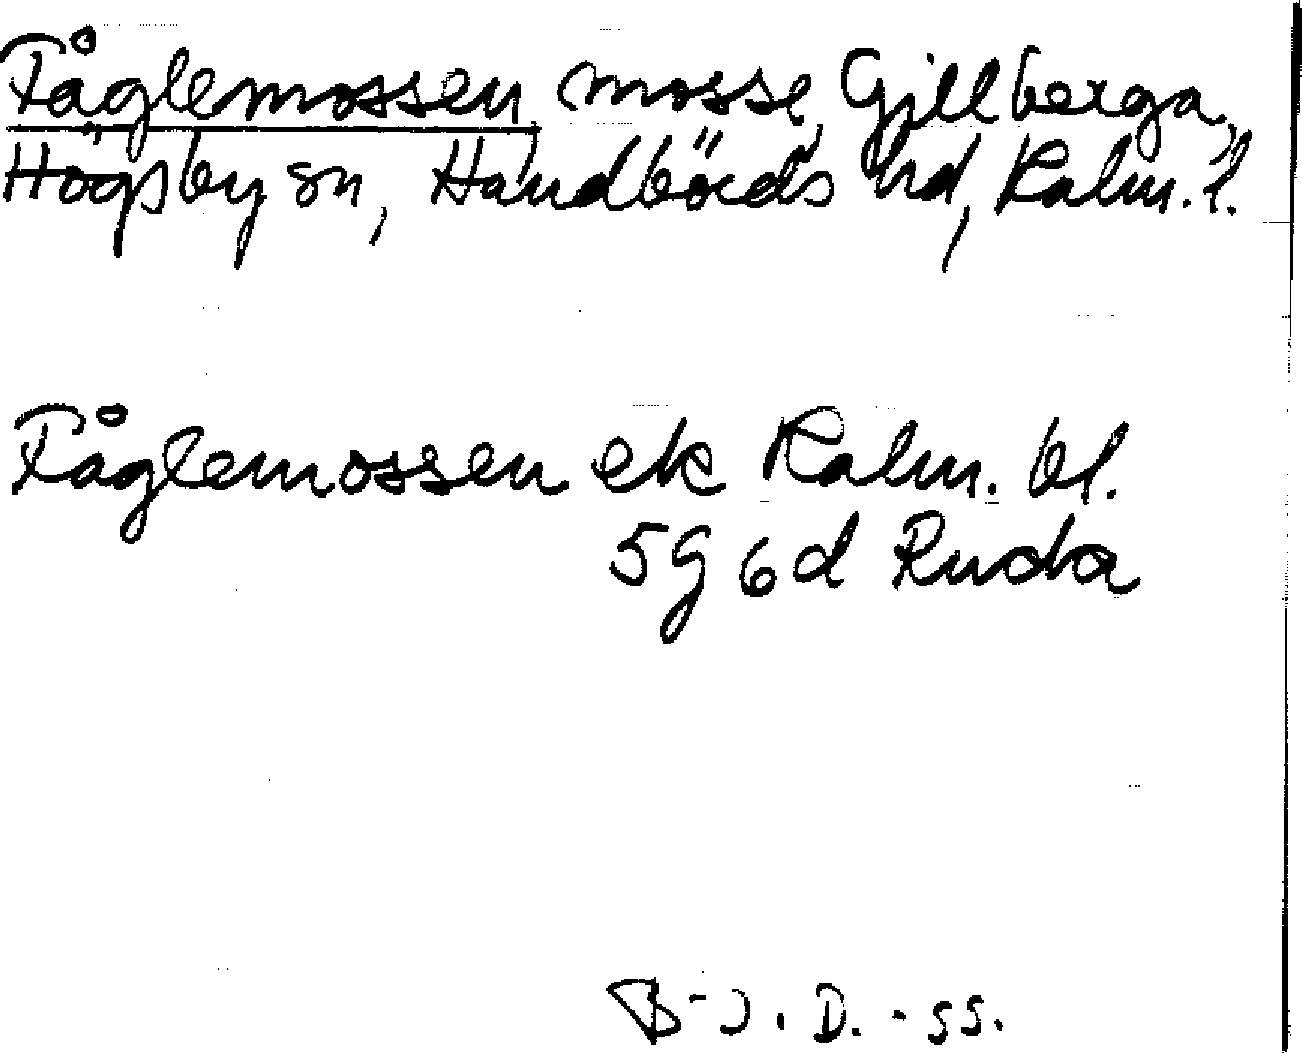 Fåglemossen, mosse, Gillberga,
Högsby sn, Handbörds hd, Kalm. l.
Fåglemossen ek Kalm. bl.
5g 6d Ruda
B-J. D. -ss.